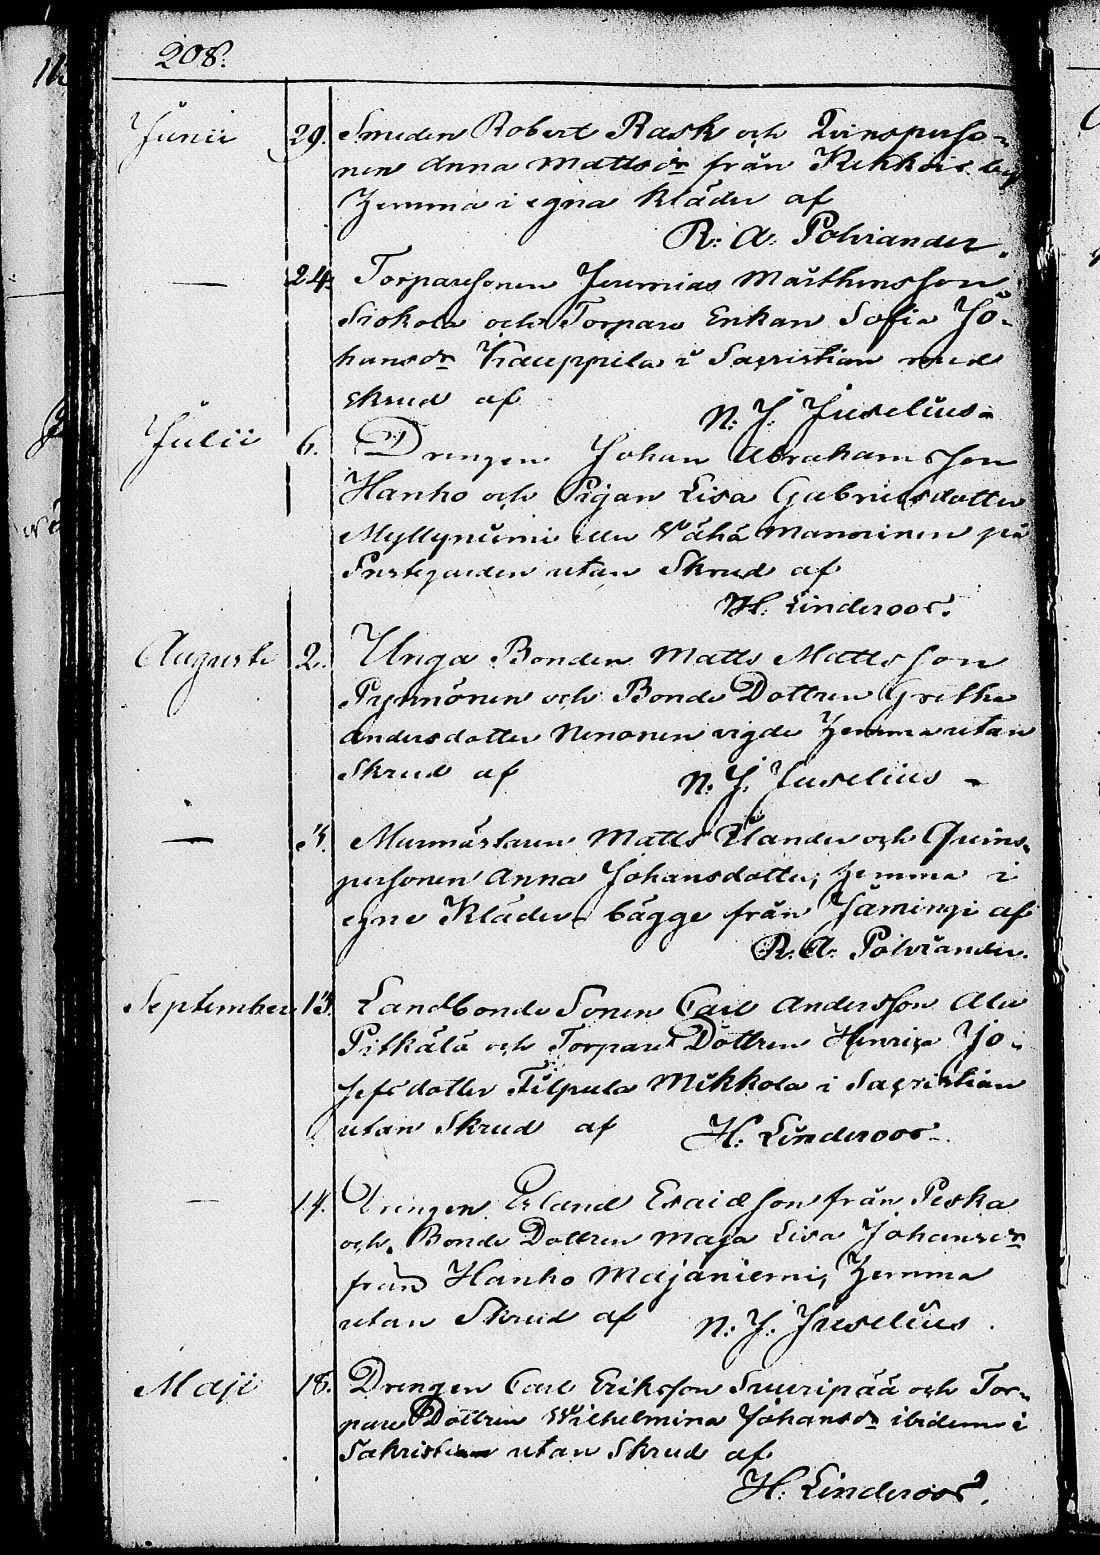 208.
Junii 29. Smeden Robert Rask och Qvinsperso-
nen Anna Mattsdr från Kekkois by
hemma i egna kläder af
R. A. Polviander.
— 24. Torparesonen Jeremias Mårthensson
Siokola och Torpare Enkan Sofia Jo-
hansdr Kauppila i Sacristian med
skrud af
N. J. Juselius
Julii 6. Drengen Johan Abrahamsson
Hanho och Pigan Lisa Gabrielsdotter
Myllyniemi eller Vähä Manninen på
Prestegården utan Skrud af
H. Linderoos.
Augusti 2. Unga Bonden Matts Mattsson
Pynnönen och Bonde Dottren Gretha
Andersdotter Nenonen vigde hemma utan
Skrud af N. J. Juselius –
— 3. Murmästaren Matts Ulander och Quins-
personen Anna Johansdotter, hemma i
egne Kläder, bägge från Jämingi af
R. A. Polviander.
September 13. Landbonde Sonen Carl Andersson Ala
Pitkälä och Torpare Dottren Henrica Jo-
sefsdotter Filpula Mikkola i Sacristian
utan Skrud af H. Linderoos.
— 14. Drengen Erland Esaiæson från Peska
och Bonde Dottren Maja Lisa Johansdr
från Hanho Majaniemi, hemma
utan Skrud af N. J. Juselius.
Maji 18. Drengen Carl Eriksson Suuripää och Tor-
pare Dottren Wilhelmina Johansdr ibidem i
Sakristian utan Skrud af
H. Linderoos.